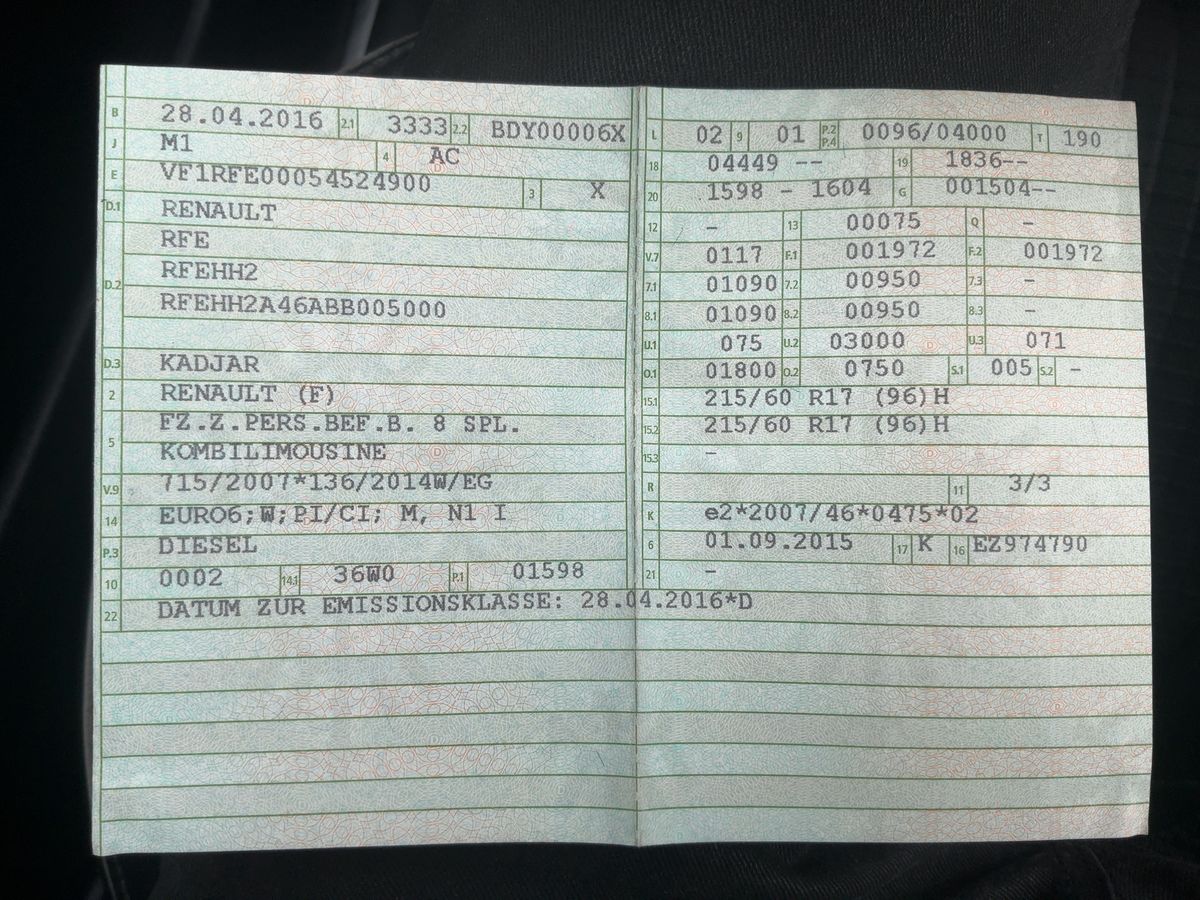 B 28.04.2016 2.1 3333 2.2 BDY00006X
J M1 4 AC
E VF1RFE00054524900 3 X
D.1 RENAULT
RFE
D.2 RFEHH2
RFEHH2A46ABB005000
D.3 KADJAR
2 RENAULT (F)
5 FZ.Z.PERS.BEF.B. 8 SPL.
KOMBILIMOUSINE
V.9 715/2007*136/2014W/EG
14 EURO6;W;PI/CI; M, N1 I
P.3 DIESEL
10 0002 14.1 36W0 P.1 01598
22 DATUM ZUR EMISSIONSKLASSE: 28.04.2016*D
L 02 9 01 P.2 P.4 0096/04000 T 190
18 04449 -- 19 1836--
20 1598 - 1604 G 001504--
12 - 13 00075 Q -
V.7 0117 F.1 001972 F.2 001972
7.1 01090 7.2 00950 7.3 -
8.1 01090 8.2 00950 8.3 -
U.1 075 U.2 03000 U.3 071
O.1 01800 O.2 0750 S.1 005 S.2 -
15.1 215/60 R17 (96)H
15.2 215/60 R17 (96)H
15.3 -
R 11 3/3
K e2*2007/46*0475*02
6 01.09.2015 17 K 16 EZ974790
21 -